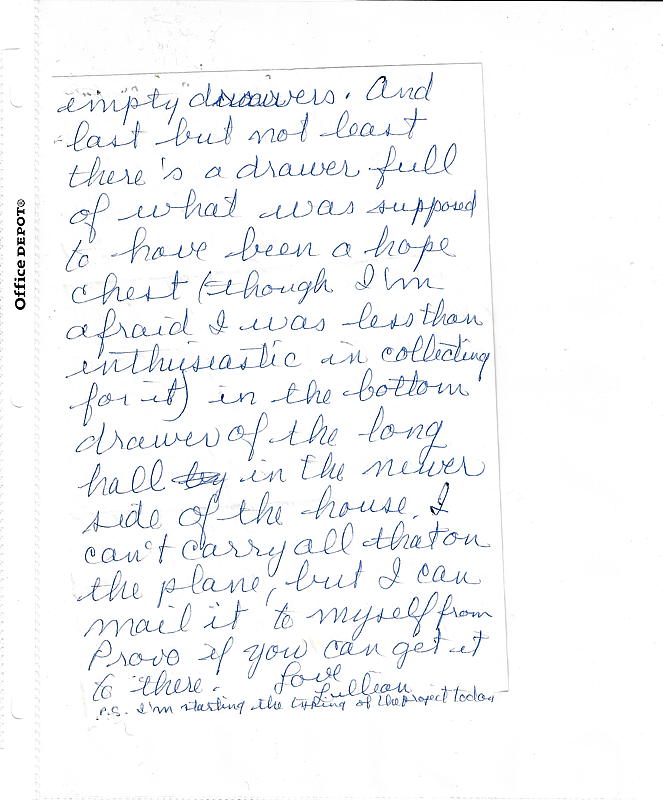 Office DEPOT®
empty drawers. And
last but not least
there's a drawer full
of what was supposed
to have been a hope
chest (though I'm
afraid I was less than
enthusiastic in collecting
for it) in the bottom
drawer of the long
hall in the newer
side of the house. I
can't carry all that on
the plane, but I can
mail it to myself from
Provo if you can get it
to there. Love
Lillian
P.S. I'm starting the typing of the project today